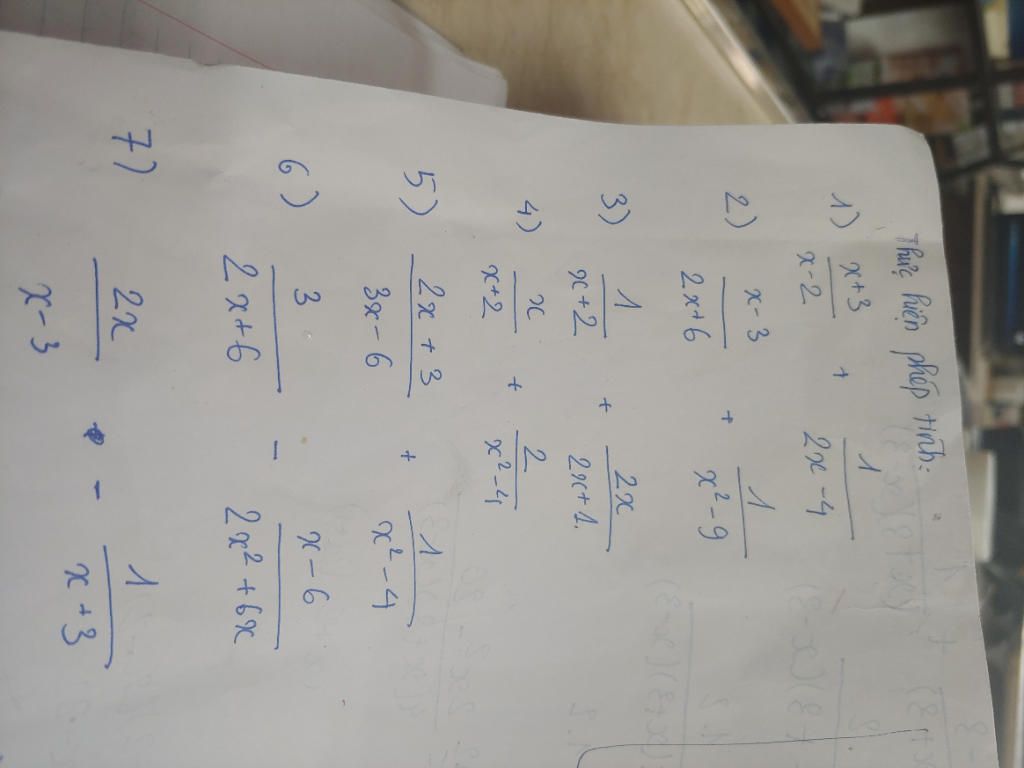 Thực hiện phép tính:
1) \frac{x+3}{x-2} + \frac{1}{2x-4}
2) \frac{x-3}{2x+6} + \frac{1}{x^2-9}
3) \frac{1}{x+2} + \frac{2x}{2x+1}.
4) \frac{x}{x+2} + \frac{2}{x^2-4}
5) \frac{2x+3}{3x-6} + \frac{1}{x^2-4}
6) \frac{3}{2x+6} - \frac{x-6}{2x^2+6x}
7) \frac{2x}{x-3} - \frac{1}{x+3}